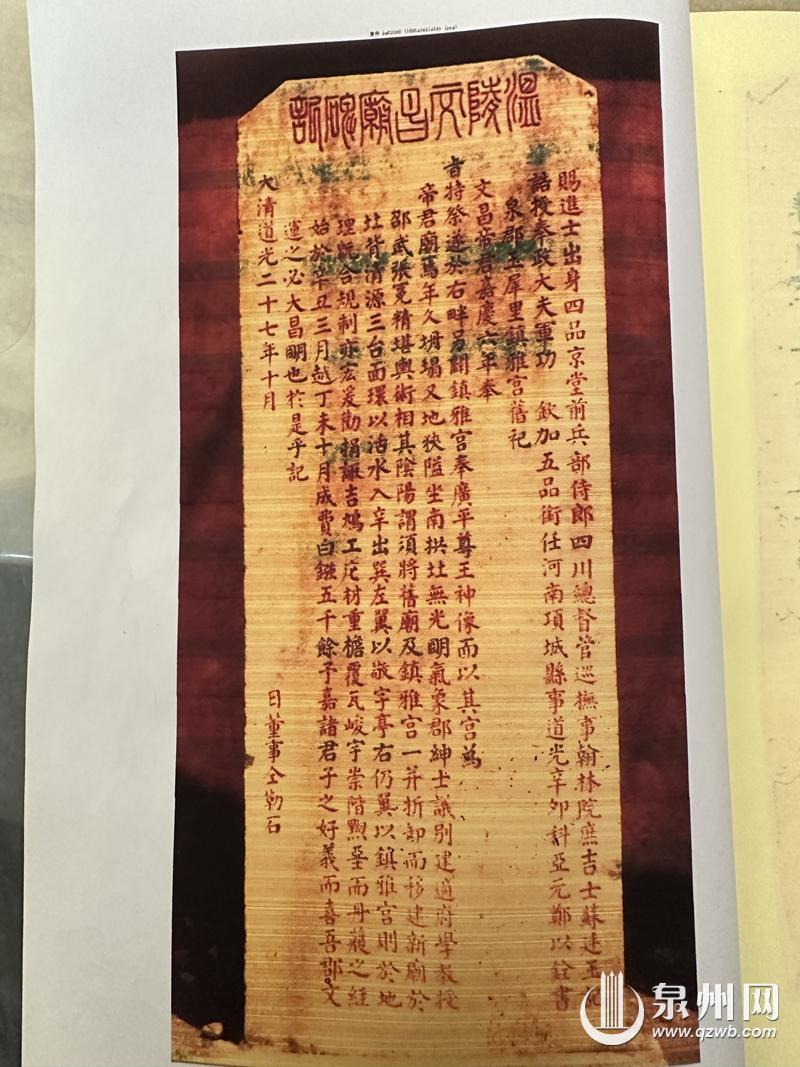 溫陵文昌廟碑記
賜進士出身四品京堂前兵部侍郎四川總督管巡撫事翰林院庶吉士蘇廷玉
誥授奉政大夫軍功 欽加五品銜任河南項城縣事道光辛卯科亞元鄭以銓書
泉郡五犀里鎮雅宮舊祀
文昌帝君嘉慶六年奉
旨特祭遂於右畔另闢鎮雅宮奉廣平尊王神像而以其宮為
帝君廟焉年久坍塌又地狹隘坐南拱北無光明氣象郡紳士議別建適府學教授
邵武張冕精堪輿術相其陰陽謂須將舊廟及鎮雅宮一并折卸而移建新廟於
北背清源三台面環以活水入辛出巽左翼以敬字亭右仍翼以鎮雅宮則於地
理既合規制亦宏爰勸捐諏吉鳩工庀材重檐覆瓦峻宇崇階黝堊而丹雘之經
始於辛丑三月越丁未十月成費白鏹五千餘予嘉諸君子之好義而喜吾郡文
運之必大昌明也於是乎記
大清道光二十七年十月 日董事仝勒石
泉州网
www.qzwb.com